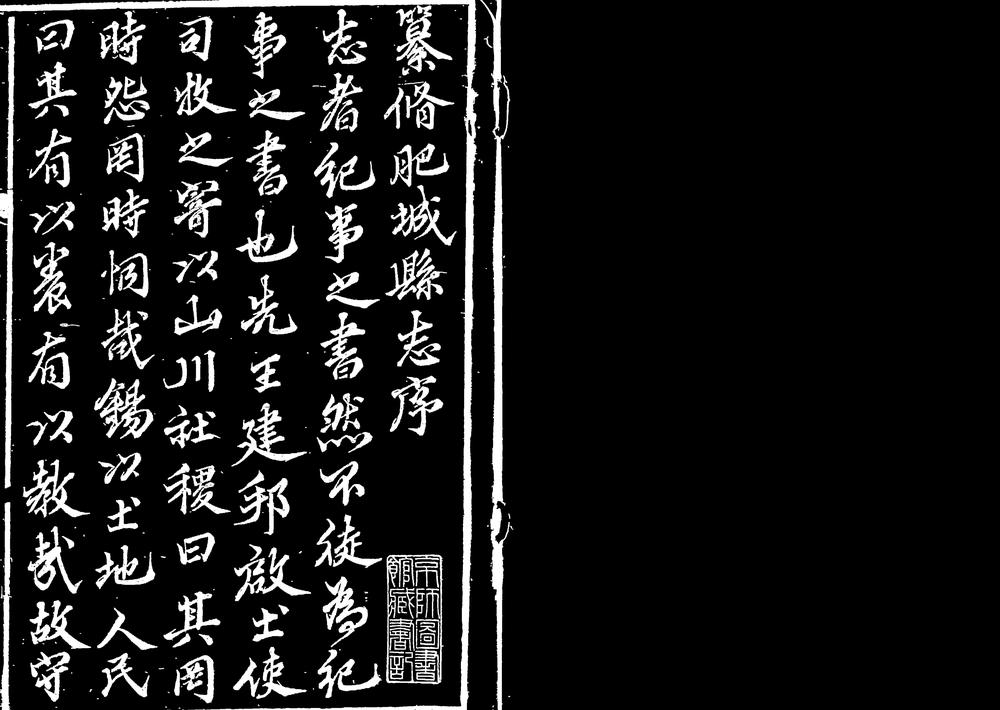 纂脩肥城縣志序
志者紀事之書然不徒為紀
事之書也先王建邦啟土使
司牧之寄以山川社稷曰其罔
時怨罔時恫哉錫以土地人民
曰其有以養有以教哉故守
京師圖書
館藏書記